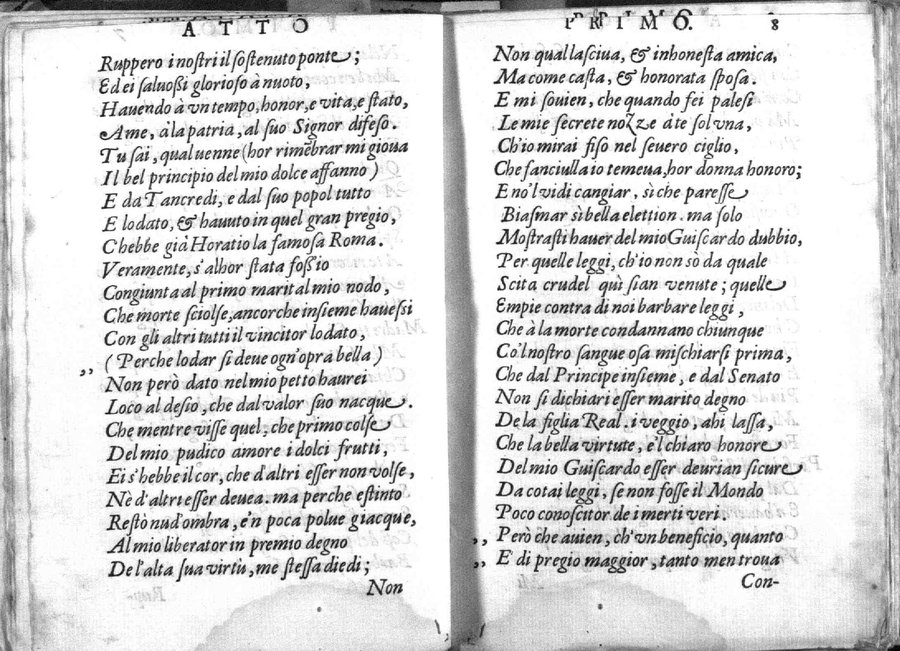 ATTO
Ruppero i nostri il sostenuto ponte;
Ed ei saluossi glorioso à nuoto,
Hauendo à vn tempo, honor, e vita, e stato,
A me, à la patria, al suo Signor difeso.
Tu sai, qual uenne (hor rimẽbrar mi gioua
Il bel principio del mio dolce affanno)
E da Tancredi, e dal suo popol tutto
E lodato, & hauuto in quel gran pregio,
C'hebbe già Horatio la famosa Roma.
Veramente, s'alhor stata foss'io
Congiunta al primo marital mio nodo,
Che morte sciolse, ancorche insieme hauessi
Con gli altri tutti il vincitor lodato,
,, (Perche lodar si deue ogn'opra bella)
Non però dato nel mio petto haurei
Loco al desio, che dal valor suo nacque.
Che mentre visse quel, che primo colse
Del mio pudico amore i dolci frutti,
Ei s'hebbe il cor, che d'altri esser non volse,
Nè d'altri esser deuea. ma perche estinto
Restò nud'ombra, e'n poca polue giacque,
Al mio liberator in premio degno
De l'alta sua virtù, me stessa diedi;
Non
PRIMO. 8
Non qual lasciua, & inhonesta amica,
Ma come casta, & honorata sposa.
E mi souien, che quando fei palesi
Le mie secrete nozze à te sol vna,
Ch'io mirai fiso nel seuero ciglio,
Che fanciulla io temeua, hor donna honoro;
E no'l vidi cangiar, sì che paresse
Biasmar sì bella elettion. ma solo
Mostrasti hauer del mio Guiscardo dubbio,
Per quelle leggi, ch'io non sò da quale
Scita crudel quì sian venute; quelle
Empie contra di noi barbare leggi,
Che à la morte condannano chiunque
Co'l nostro sangue osa mischiarsi prima,
Che dal Principe insieme, e dal Senato
Non si dichiari esser marito degno
De la figlia Real. i veggio, ahi lassa,
Che la bella virtute, e'l chiaro honore
Del mio Guiscardo esser deurian sicure
Da cotai leggi, se non fosse il Mondo
Poco conoscitor de i merti veri.
,, Però che auien, ch'vn beneficio, quanto
,, E di pregio maggior, tanto men troua
Con-